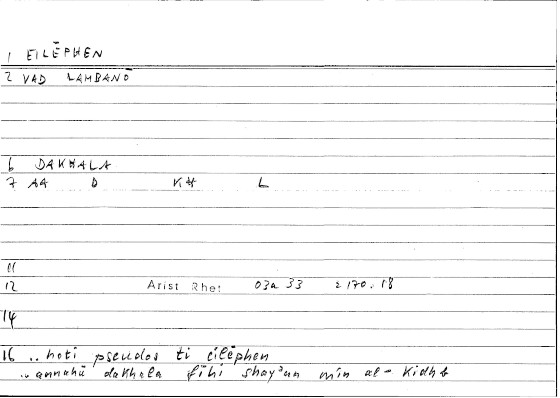 1 EILĒPHEN
2 VAD LAMBANŌ
6 DAKHALA
7 AA D KH L
11
12 Arist Rhet 03a 33 2170.18
14
16 .. hoti pseudos ti eilēphen
.. annahū dakhala fīhi shayʾun min al-kidhb